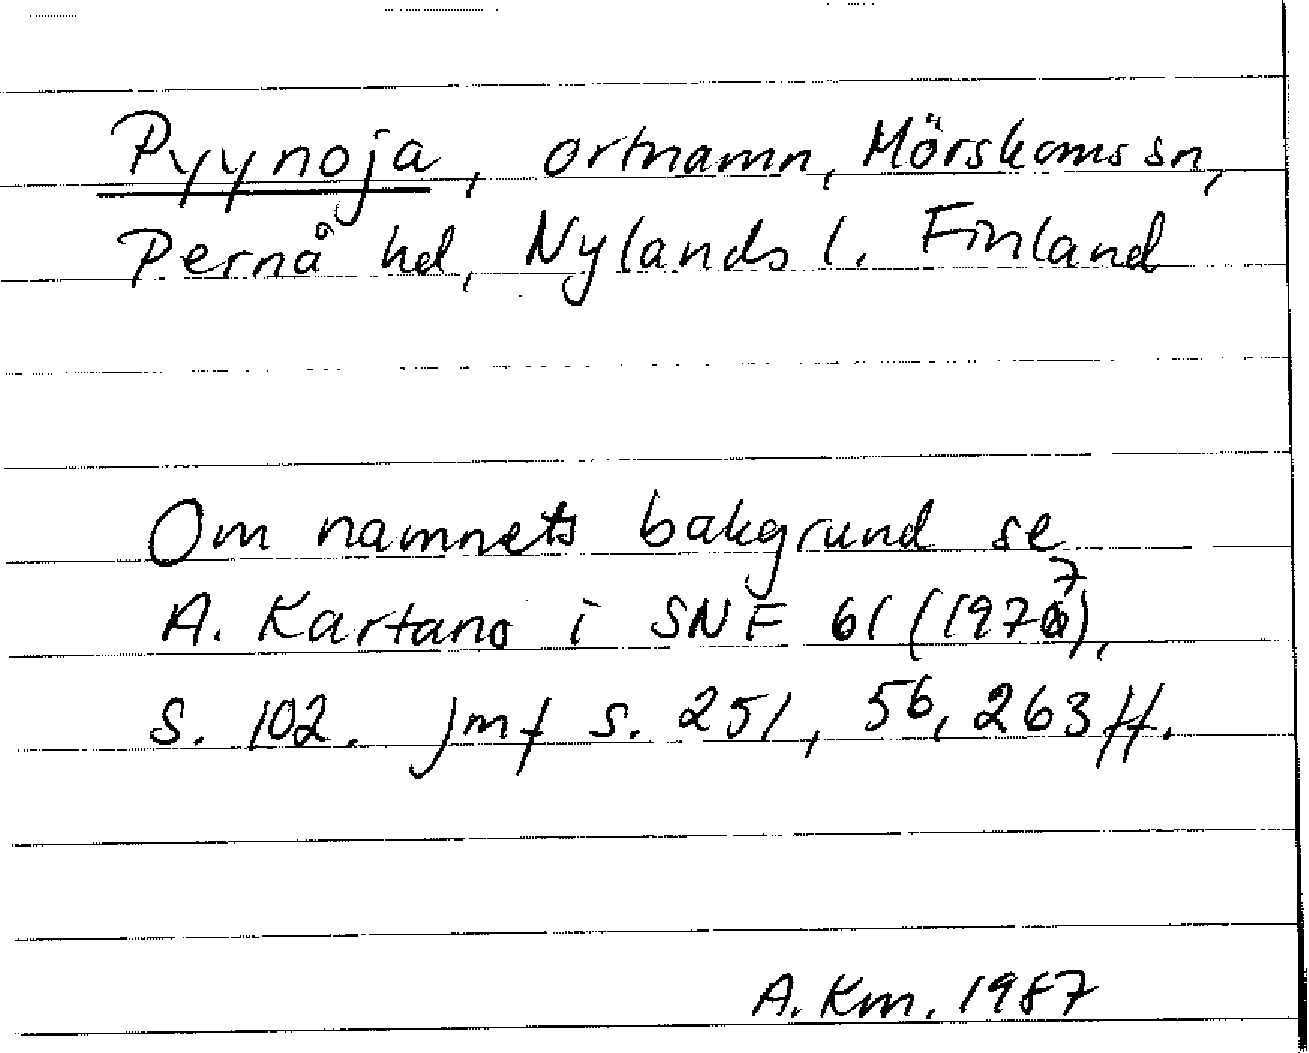 Pyynoja, ortnamn, Mörskoms sn,
Pernå hd, Nylands l. Finland
Om namnets bakgrund se
A. Kartano i SNF 61 (1977),
s. 102. Jmf s. 251, 56, 263 ff.
A. Km. 1987